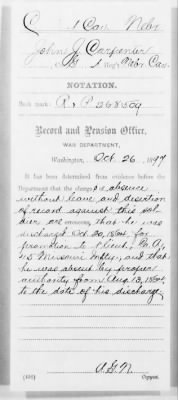 C 1 Cav. Nebr
John J. Carpenter
1 Reg't Nebr. Cav.
NOTATION.
Book mark: R & P 268509
Record and Pension Office,
WAR DEPARTMENT,
Washington, Oct. 26, 1897
It has been determined from evidence before the
Department that the charges absence
without leave, and desertion
of record against this sol-
dier are erroneous, that he was
discharged Oct. 20, 1864, for
promotion to 1 Lieut. Co.
45 Missouri Vols., and that
he was absent by proper
authority from Aug. 13, 1864,
to the date of his discharge.
Copyist.